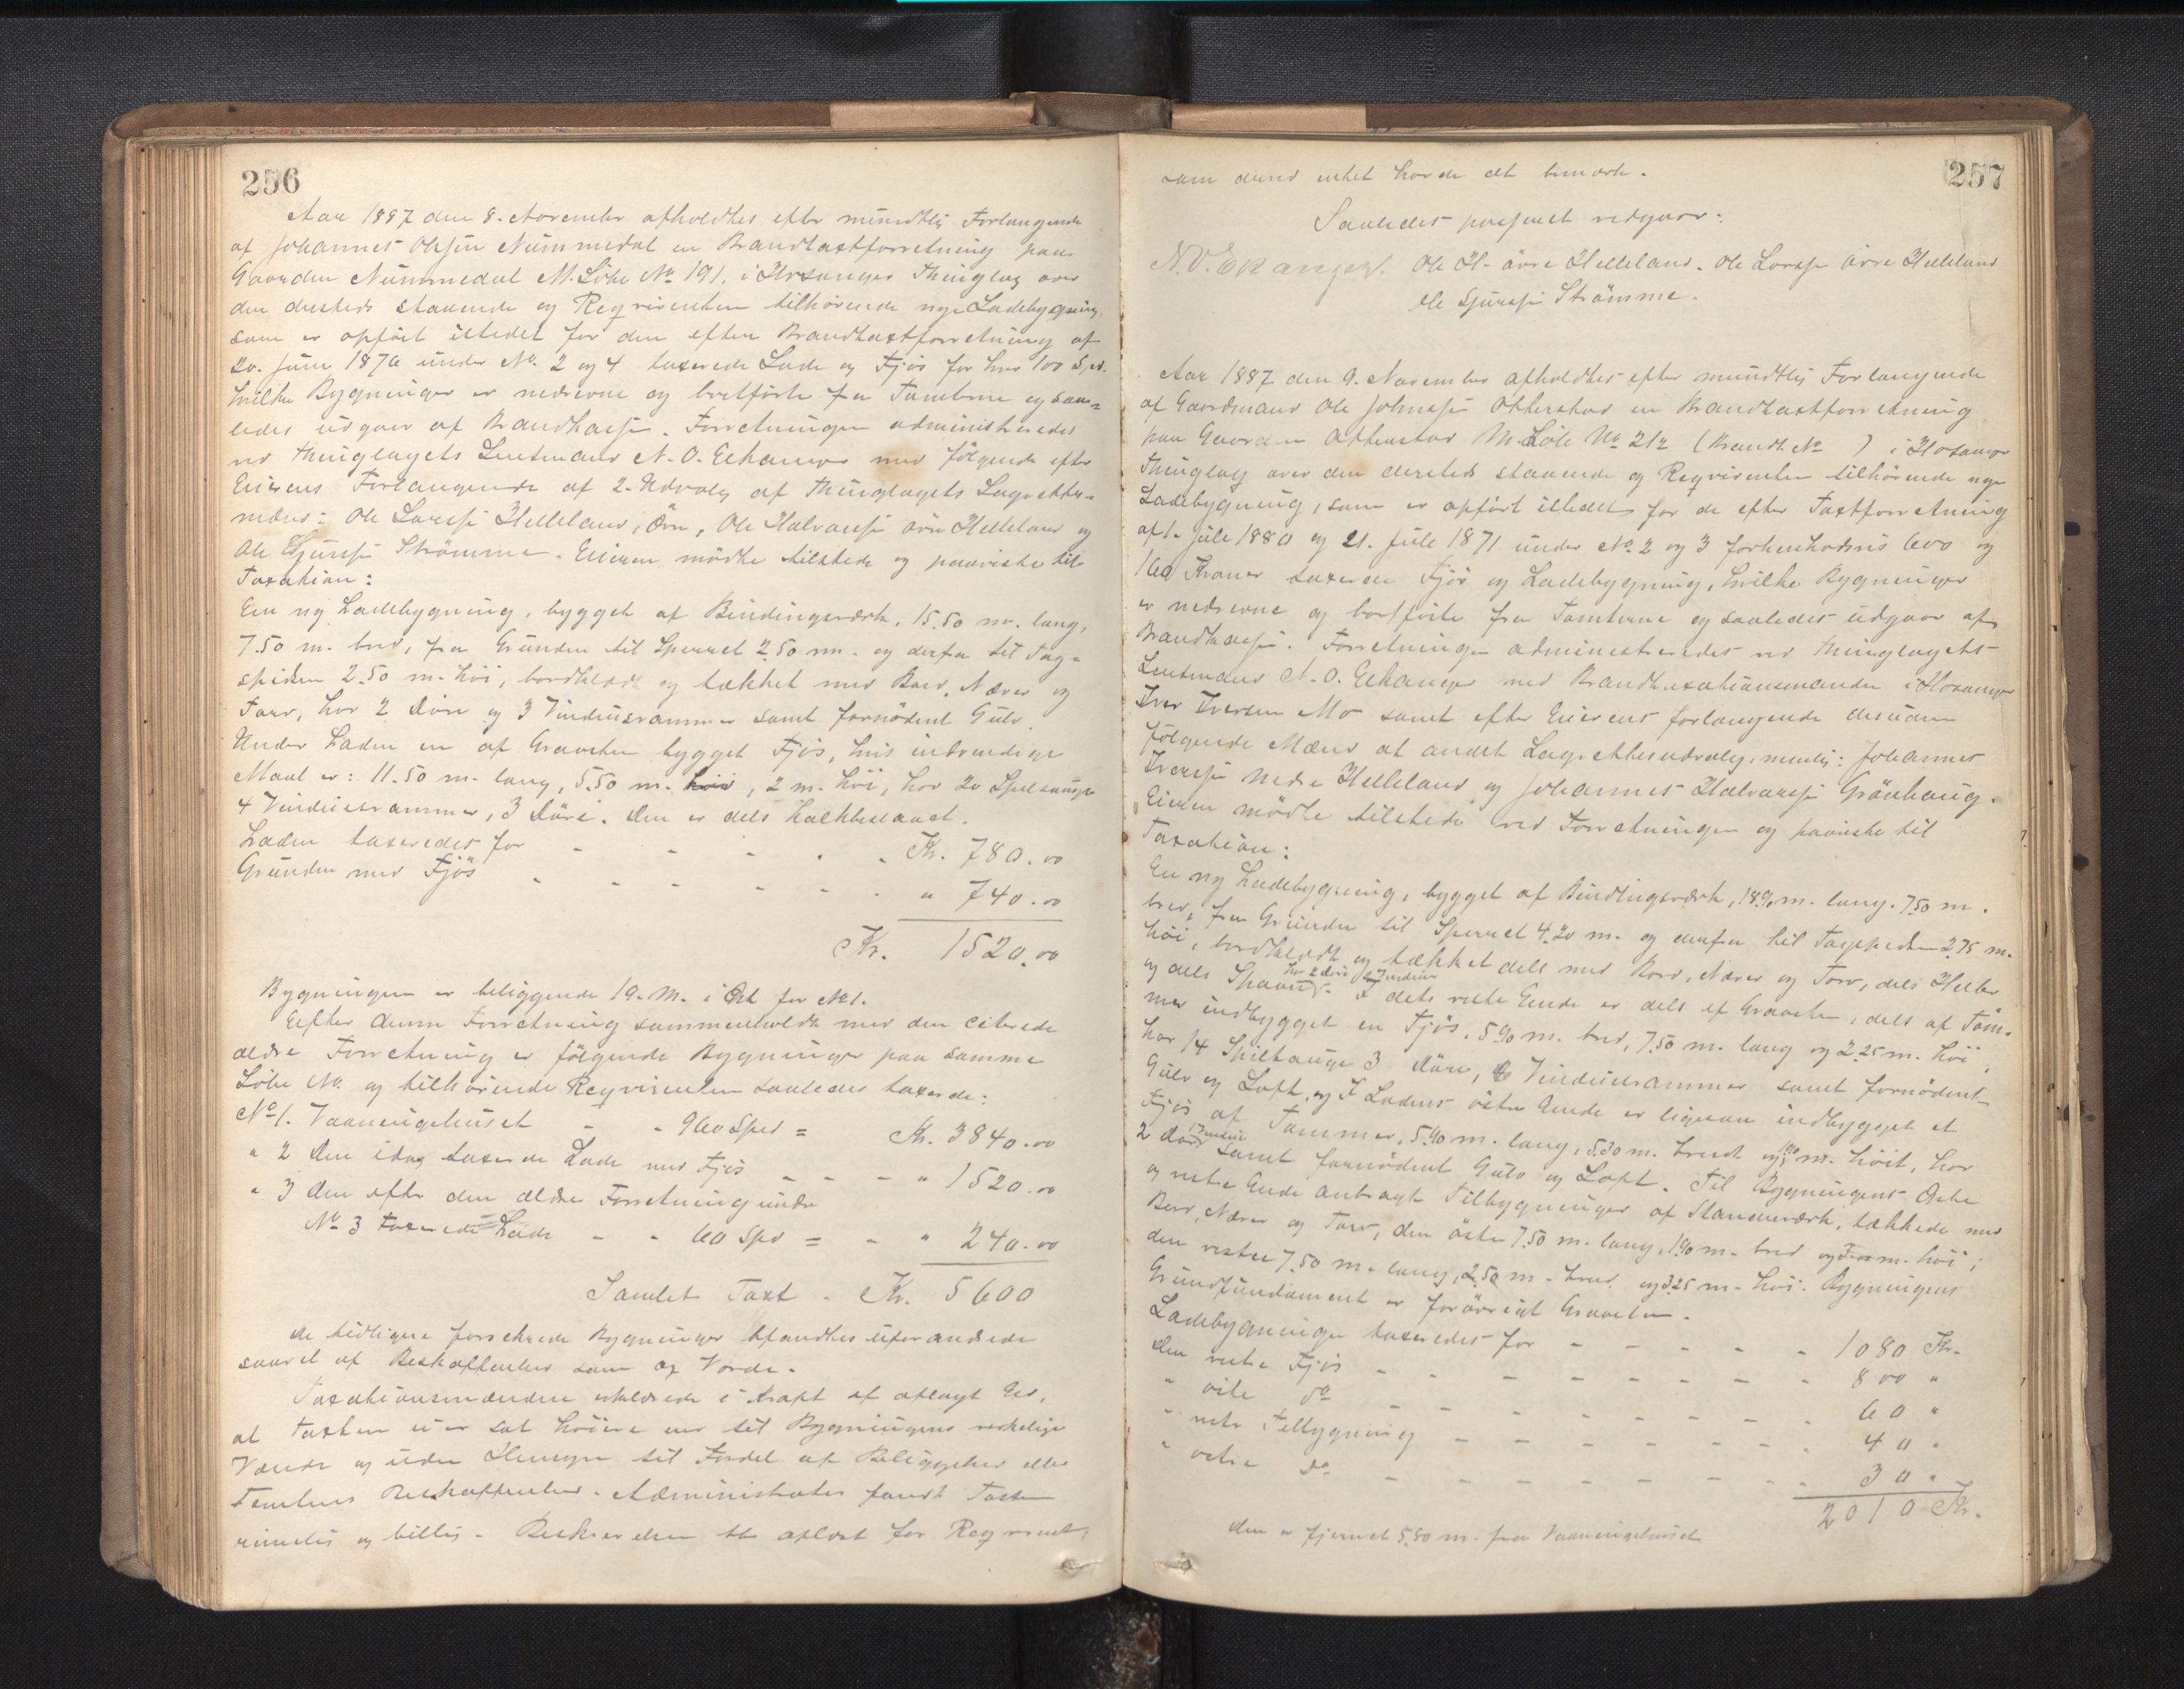 256
Aar 1887 den 8. November afholdtes efter mundtlig Forlangende
af Johannes Olssen Nummedal en Brandtaxtforretning paa
Gaarden Nummedal M. Löbe No 191. i Hosanger Thinglag over
den dersteds staaende og Reqvirenten tilhörende nye Ladebygning,
som er opfört istedet for den efter Brandtaxtforretning af
20. Juni 1876 under No. 2 og 4 taxerede Lade og Fjös for hver 100 Spd.
hvilke Bygninger er nedrevne og bortförte fra Tomterne og saa-
ledes udgaar af Brandkassen. Forretningen administreredes
ved Thinglagets Lensmand N. O. Eckanger med fölgende efter
Eierens Forlangende af 2. Udvalg af Thinglagets Lagrettes-
mænd: Ole Larssen Helleland, övre, Ole Halvorsen övre Helleland og
Ole Sjurssen Strömme. Eieren mödte tilstede og paaviste til
Taxation:
En ny Ladebygning, bygget af Bindingsværk, 15.50 m. lang,
7.50 m. bred, fra Grunden til Sperret 2.50 m. og derfra til Tag-
spidsen 2.50 m. höi, bordklædt og tækket med Bord, Næver og
Torv, har 2 Döre og 3 Vinduesrammer samt fornödent Gulv.
Under Laden en af Graasten bygget Fjös, hvis indvendige
Maal er: 11.50 m. lang, 5.50 m. höi, 2 m. höi, har 20 Spilsauge
4 Vinduesrammer, 3 Döre. Den er dels Kalkbeslaaet.
Laden taxeredes for - - - - - Kr. 780.00
Grunden med Fjös - - - - - - " 740.00
Kr. 1520.00
Bygningen er beliggende 19. M. i Öst for No 1.
Efter denne Forretning sammenholdt med den citerede
ældre Forretning er fölgende Bygninger paa samme
Löbe No. og tilhörende Reqvirenten saaledes taxerede:
No 1. Vaaningshuset - - 960 Spd = Kr. 3840.00
" 2 Den idag taxerede Lade med Fjös - - - " 1520.00
" 3 Den efter den ældre Forretning under
No 3 taxerede Lade - - 60 Spd = - " 240.00
Samlet Taxt - Kr. 5600
De tidligere forsikrede Bygninger befandtes uforandrede
saavel af Beskaffenhed som og Værdi.
Taxationsmændene erklærede i kraft af aflagt Ed,
at Taxten ei er sat höiere end til Bygningens verkelige
Værdi og uden Hensyn til Fordel af Beliggehed eller
Tomtens Beskaffenhed. Administrator fandt Taxten
rimelig og billig. Beskrivelsen blev oplæst for Reqvirent,
257
som dermed intet havde at bemærke.
Saaledes passeret vedgaar:
N. O. Ekanger. Ole H. övre Helleland. Ole Larssen övre Helleland
Ole Sjurssen Strömme.
Aar 1887 den 9. November afholdtes efter mundtlig Forlangende
af Gaardmand Ole Johnssen Otterstad en Brandtaxtforretning
paa Gaarden Otterstad M. Löbe No 212 (Brandt. No ) i Hosanger
Thinglag over den dersteds staaende og Reqvirenten tilhörende nye
Ladebygning, som er opfört istedet for de efter Taxtforretning
af 1. Juli 1880 og 21. Juli 1871 under No. 2 og 3 forhenholdsvis 600 og
160 Kroner taxerede Fjös og Ladebygning, hvilke Bygninger
er nedrevne og bortförte fra Tomterne og saaledes udgaar af
Brandkassen. Forretningen administreredes ved Thinglagets
Lensmand N. O. Eckanger med Brandtaxationsmanden i Hosanger
Iver Iversen Mo samt efter Eierens forlangende desuden
fölgende Mænd af andet Lagrettesudvalg, nemlig: Johannes
Iverssen nedre Helleland og Johannes Halvorssen Grönhaug.
Eieren mödte tilstede ved Forretningen og paaviste til
Taxation:
En ny Ladebygning, bygget af Bindingsværk, 18.90 m. lang. 7.50 m.
bred, fra Grunden til Sperret 4.20 m. og derfra til Tagspidsen 2.75 m.
höi, bordklædt og tækket dels med Bord, Næver og Torv, dels Heller
og dels Spaan. har 2 Döre 2 Vinduer I dets vestre Ende er dels af Graasten, dels af Töm-
mer indbygget en Fjös, 5.90 m. bred, 7.50 m. lang og 2.25 m. höi,
har 14 Spilsauge 3 Döre, 6 Vinduesrammer samt fornödent
Gulv og Loft, og I Ladens östre Ende er ligesaa indbygget et
Fjös af Tömmer, 5.40 m. lang, 5.30 m. bredt og 1.90 m. höit, har
2 Döre 1 Vindue samt fornödent Gulv og Loft. Til Bygningens Östre
og vestre Ende anbragt Tilbygninger af Standerværk, tækkede med
Bord, Næver og Torv, den östre 7.50 m. lang, 1.90 m. bred og m. höi;
den vestre 7.50 m. lang, 2.50 m. bred og 3.25 m. höi. Bygningens
Grundfundament er forövrigt Graasten.
Ladebygningen taxeredes for - - - - - 1080 Kr.
Den vestre Fjös - - - - - - - 800 "
" östre do - - - - - - - - 60 "
" vestre Tilbygning - - - - - - - 40 "
" östre do - - - - - - - - 30 "
2010 Kr.
Den er fjernet 5.80 m. fra Vaaningshuset